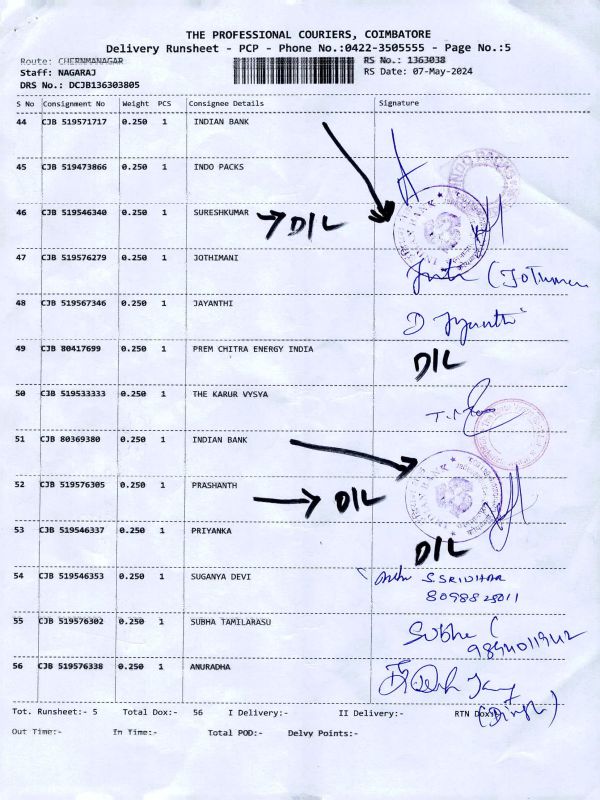 THE PROFESSIONAL COURIERS, COIMBATORE
Delivery Runsheet - PCP - Phone No.:0422-3505555 - Page No.:5
Route: CHERNMANAGAR RS No.: 1363038
Staff: NAGARAJ RS Date: 07-May-2024
DRS No.: DCJB136303805
S No Consignment No Weight PCS Consignee Details Signature
44 CJB 519571717 0.250 1 INDIAN BANK
45 CJB 519473866 0.250 1 INDO PACKS
INDO PACKS
46 CJB 519546340 0.250 1 SURESHKUMAR D/L
INDIAN BANK
47 CJB 519576279 0.250 1 JOTHIMANI
48 CJB 519567346 0.250 1 JAYANTHI
D Jayanthi
49 CJB 80417699 0.250 1 PREM CHITRA ENERGY INDIA D/L
50 CJB 519533333 0.250 1 THE KARUR VYSYA
51 CJB 80369380 0.250 1 INDIAN BANK
INDIAN BANK
52 CJB 519576305 0.250 1 PRASHANTH D/L
53 CJB 519546337 0.250 1 PRIYANKA D/L
54 CJB 519546353 0.250 1 SUGANYA DEVI S.SRIDHAR
8098825011
55 CJB 519576302 0.250 1 SUBHA TAMILARASU Subha
9894011942
56 CJB 519576338 0.250 1 ANURADHA
Tot. Runsheet:- 5 Total Dox:- 56 I Delivery:- II Delivery:- RTN Dox:-
Out Time:- In Time:- Total POD:- Delvy Points:-